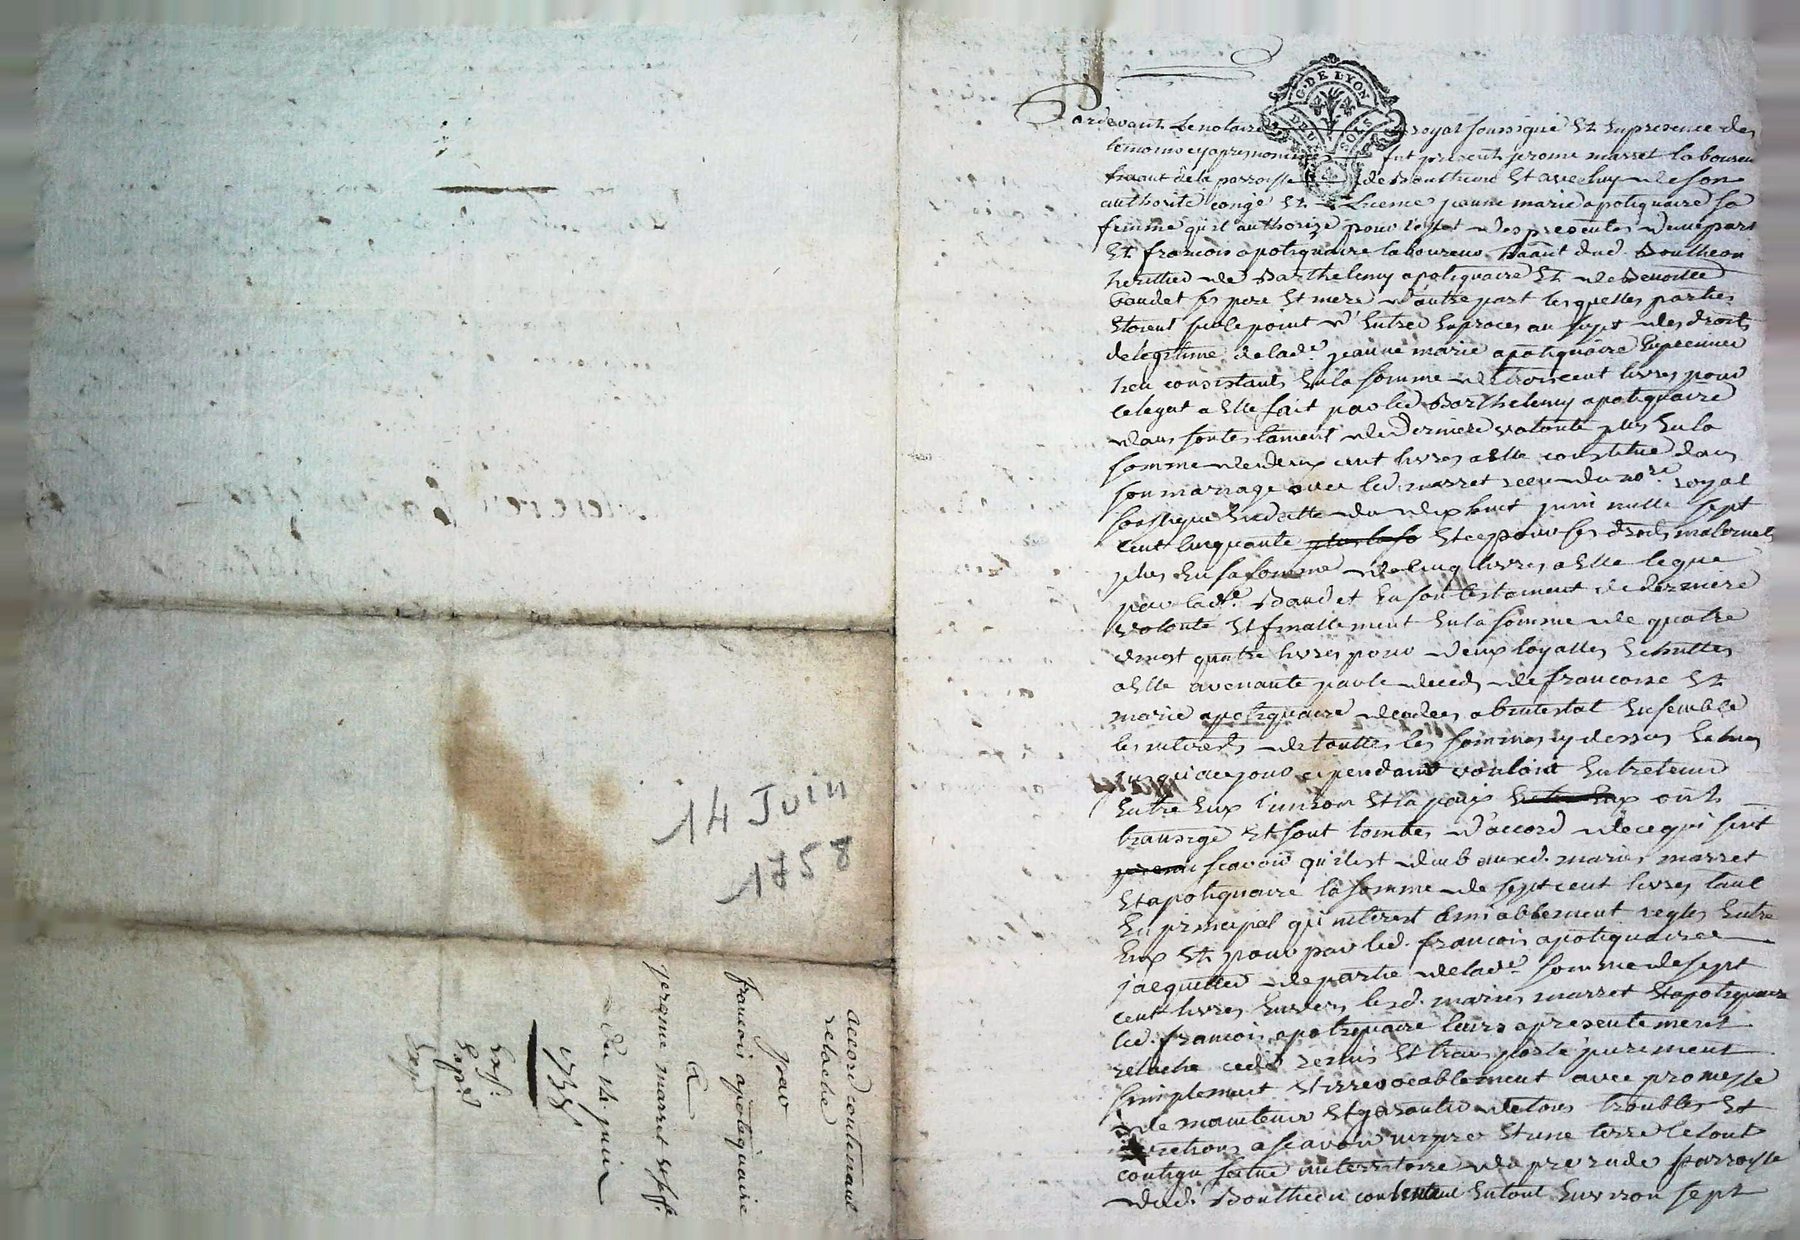 14 Juin
1758
accord contenant
relache
par
francois apotiquaire
a
jerome marret et sa fe
du 14. juin
1758
G. DE LYON
DEUX SOLS
Pardevant le notaire royal soussigné Et En presence des
temoins cy apres nommés fut present jerome marret laboureur
de la parroisse de Boutheon Et avec luy de son
authorité congé Et Licence jeanne marie apotiquaire sa
femme qu'il authorize pour l'effet des presentes d'une part
Et francois apotiquaire laboureur dud. Boutheon
heritier de Barthelemy apotiquaire Et de Benoitte
Baudet ses pere Et mere d'autre part lesquelles parties
Etoient sur le point d'Entrer En proces au sujet des droits
de legitime de lad.e jeanne marie apotiquaire En premier
lieu consistants En la somme de trois cent livres pour
le legat a Elle fait par led. Barthelemy apotiquaire
dans son testament de derniere volonté plus En la
somme de deux cent livres a Elle constitué dans
son mariage avec led. marret receu du no.re royal
soussigné En datte du dix huit juin mille sept
cent cinquante plus la so Et ce pour ses droits maternels
plus En la somme de cinq livres a Elle legué
par lad.e Baudet En son testament de derniere
volonté Et finallement En la somme de quatre
vingt quatre livres pour deux loyalles Echuttes
a Elle avenante par le deced de francoise Et
marie apotiquaire decedees abintestat Ensemble
les interets de touttes les sommes cy dessus Echus
jusqu'a ce jour cependant voulant Entretenir
Entre Eux l'union Et la paix Entre Eux ont
transigé Et sont tombés d'accord de ce qui suit
scavoir qu'il est dub auxd. mariés marret
Et apotiquaire la somme de sept cent livres tant
En principal qu'interest amiablement reglés Entre
Eux Et pour par led. francois apotiquaire
jacquitter de partie de lad.e somme de sept
cent livres Envers lesd. mariés marret Et apotiquaire
led. francois apotiquaire leurs a presentement
relaché cedé remis Et transporté purement
simplement Et irrevocablement avec promesse
de maintenir Et garantir de tous troubles Et
Evictions a scavoir un pré Et une terre le tout
contigu situé au territoire parroisse
dud. Boutheon contenant En tout Environ sept